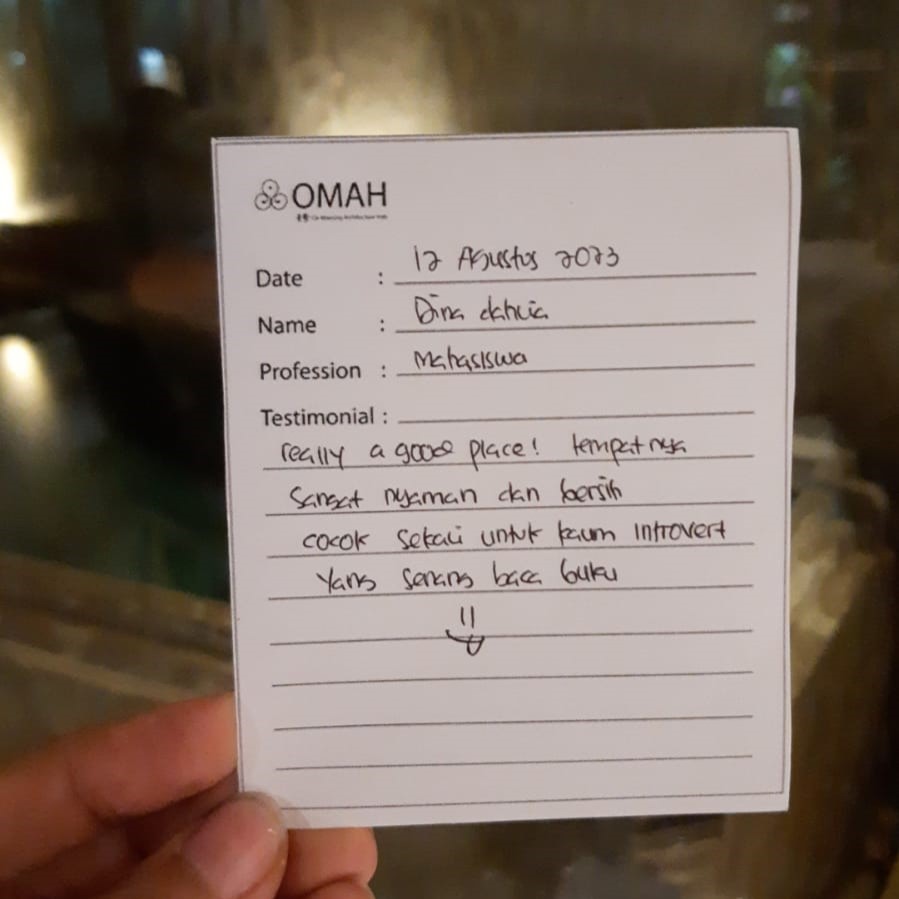 OMAH
Date : 12 Agustus 2023
Name : Dina dahlia
Profession : Mahasiswa
Testimonial :
really a good place! tempatnya
Sangat nyaman dan bersih
cocok sekali untuk kaum introvert
Yang senang baca buku